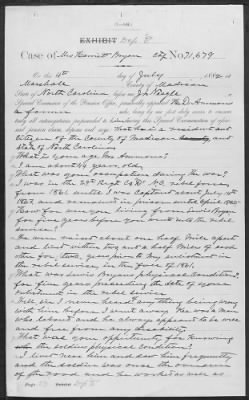 EXHIBIT Dep. B
Case of Mrs Harriett Bryan No. 71,679
On this 11th day of July, 1884, at
Marshall County of Madison
State of North Carolina before me
Special Examiner of the Pension Office, personally appeared W. D. Ammons
a farmer
who, being by me first duly sworn to answer
truly all interrogatories propounded to him during this Special Examination of afore-
said pension claim, deposes and says: that he is a resident and
citizen of the County of Madison and
State of North Carolina
What is your age Mr Ammons?
I am about 44 years old.
What was your occupation during the war?
I was in the 29th Regt N.C. rebel force
from 1861 until I was captured about July
1863 and remained in prison until April 1865
How far did you live from Lewis Bryan
for five years before you went into the rebel
service?
We were raised about one half mile apart
and lived within two and a half miles of each
other for five years prior to my enlistment in
the rebel service in the fall of 1861.
What was Lewis Bryan's physical condition
for five years preceding the date of your
enlistment in the rebel service?
Well sir I never heard any thing being wrong
with him before I went away. He was a man
who labored and he always appeared to be well
and free from any disability.
What was your opportunity for knowing
the soldiers physical condition?
I lived near him and saw him frequently
and the soldier was once the overseer
of the road and he worked as well as